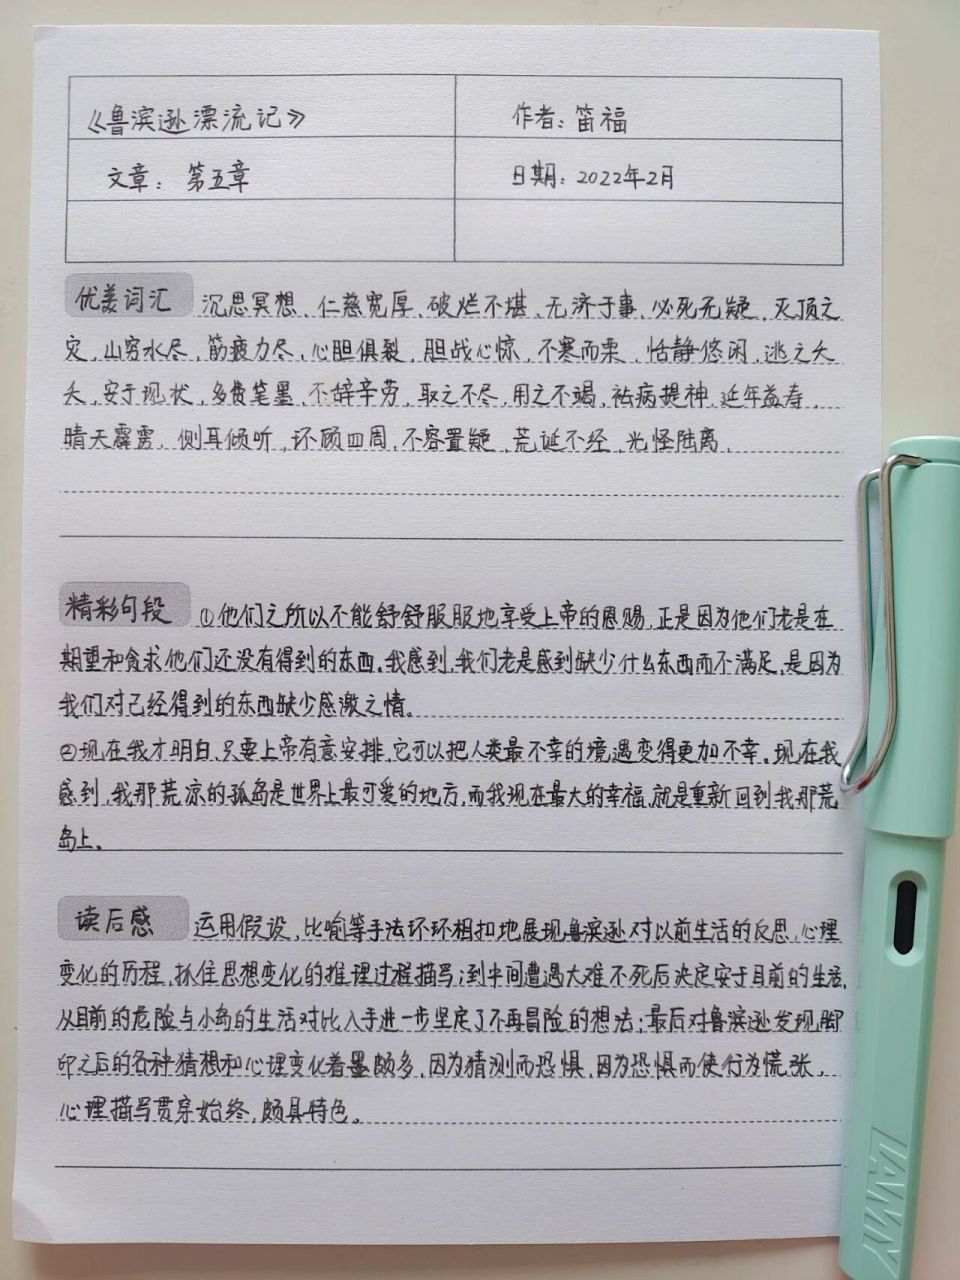 《鲁滨逊漂流记》 作者：笛福
文章：第五章 日期：2022年2月
优美词汇 沉思冥想、仁慈宽厚、破烂不堪、无济于事、必死无疑、灭顶之
灾，山穷水尽，筋疲力尽，心胆俱裂，胆战心惊，不寒而栗，恬静悠闲，逃之夭
夭，安于现状，多费笔墨，不辞辛劳，取之不尽，用之不竭，祛病提神，延年益寿，
晴天霹雳，侧耳倾听，环顾四周，不容置疑，荒诞不经，光怪陆离，
精彩句段 ①他们之所以不能舒舒服服地享受上帝的恩赐，正是因为他们老是在
期望和贪求他们还没有得到的东西。我感到，我们老是感到缺少什么东西而不满足，是因为
我们对已经得到的东西缺少感激之情。
②现在我才明白，只要上帝有意安排，它可以把人类最不幸的境遇变得更加不幸。现在我
感到，我那荒凉的孤岛是世界上最可爱的地方，而我现在最大的幸福，就是重新回到我那荒
岛上。
读后感 运用假设，比喻等手法环环相扣地展现鲁滨逊对以前生活的反思，心理
变化的历程，抓住思想变化的推理过程描写；到中间遭遇大难不死后决定安于目前的生活，
从目前的危险与小岛的生活对比入手进一步坚定了不再冒险的想法；最后对鲁滨逊发现脚
印之后的各种猜想和心理变化着墨颇多，因为猜测而恐惧，因为恐惧而使行为慌张，
心理描写贯穿始终，颇具特色。
LAMY